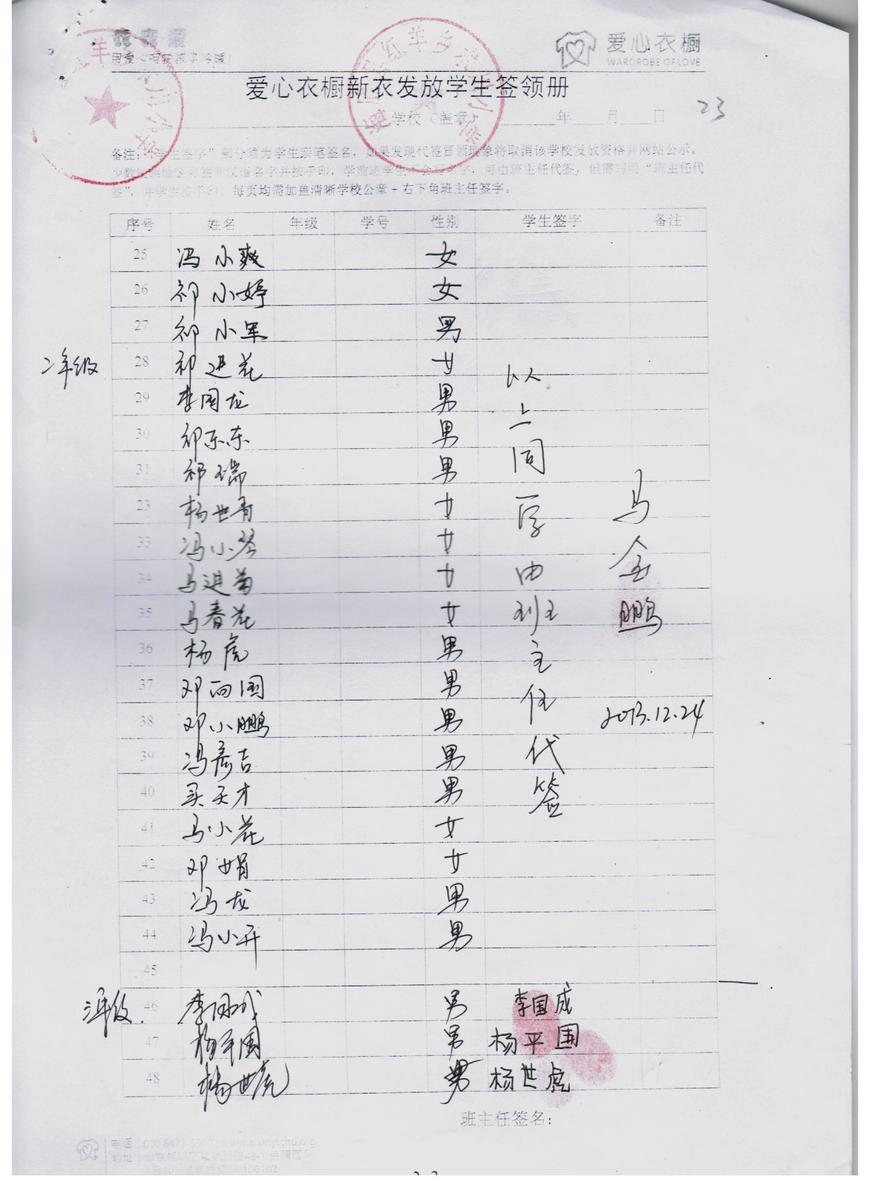 爱心衣橱
WARDROBE OF LOVE
爱心衣橱新衣发放学生签领册
学校（盖章） 年 月 日
23
备注：“学生签字”部分须为学生亲笔签名，如果发现代签冒领现象将取消该学校发放资格并网站公示，
每页均需加盖清晰学校公章+右下角班主任签字。
序号 姓名 年级 学号 性别 学生签字 备注
25 冯小爽 女
26 祁小婷 女
27 祁小军 男
2年级 28 祁进花 女
29 李国龙 男
30 祁东东 男
31 祁瑞 男
23 杨世青 女
33 冯小琴 女
34 马进菊 女
35 马春花 女
36 杨虎 男
37 邓向国 男
38 邓小鹏 男
39 冯彦吉 男
40 买天才 男
41 马小花 女
42 邓娟 女
43 冯龙 男
44 冯小开 男
以上同学由班主任代签
马金鹏
2013.12.24
45
三年级 46 李国成 男 李国成
47 杨平国 男 杨平国
48 杨世虎 男 杨世虎
班主任签名：